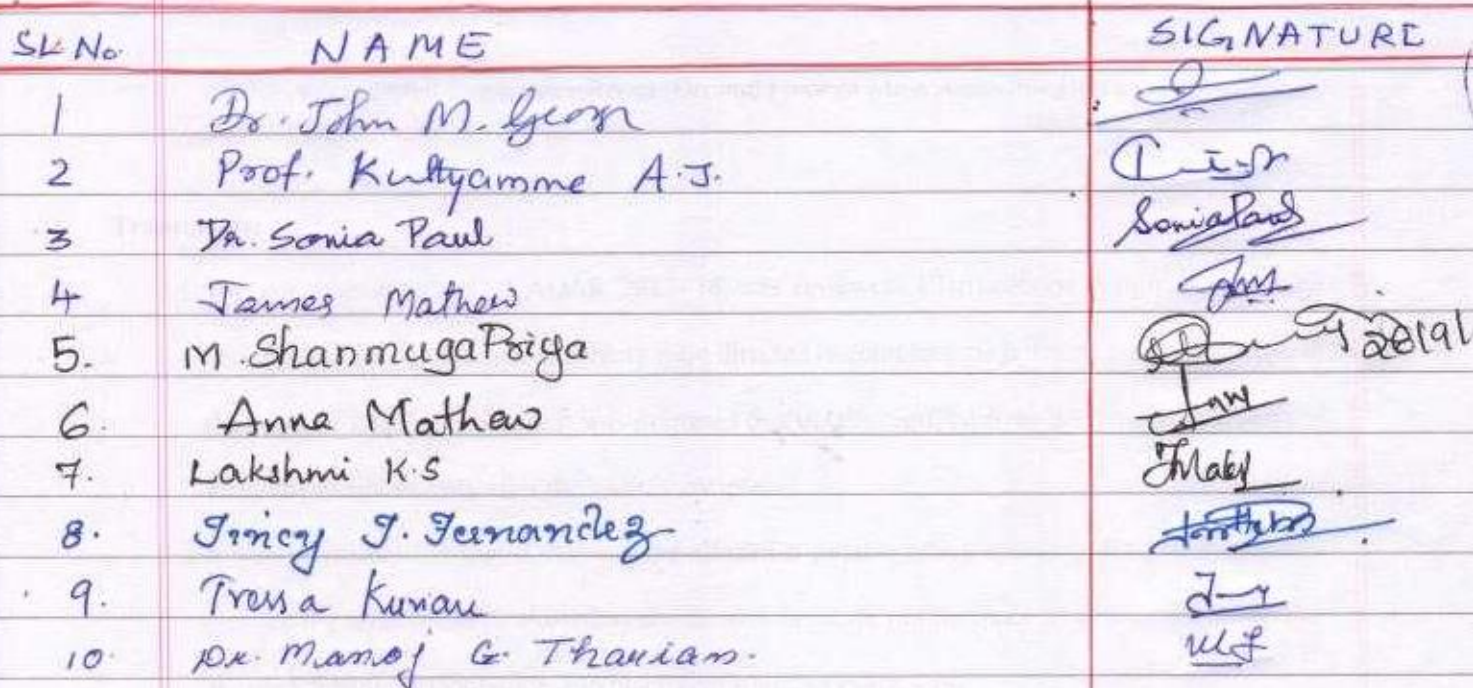 SL No. NAME SIGNATURE
1 Dr. John M. George
2 Prof. Kuttyamme A.J.
3 Dr. Sonia Paul SoniaPaul
4 James Mathew
5. M. ShanmugaPriya 28/9/
6. Anna Mathew
7. Lakshmi K.S
8. Jincy J. Fernandez
9. Tressa Kurian
10. Dr. Manoj G. Tharian.